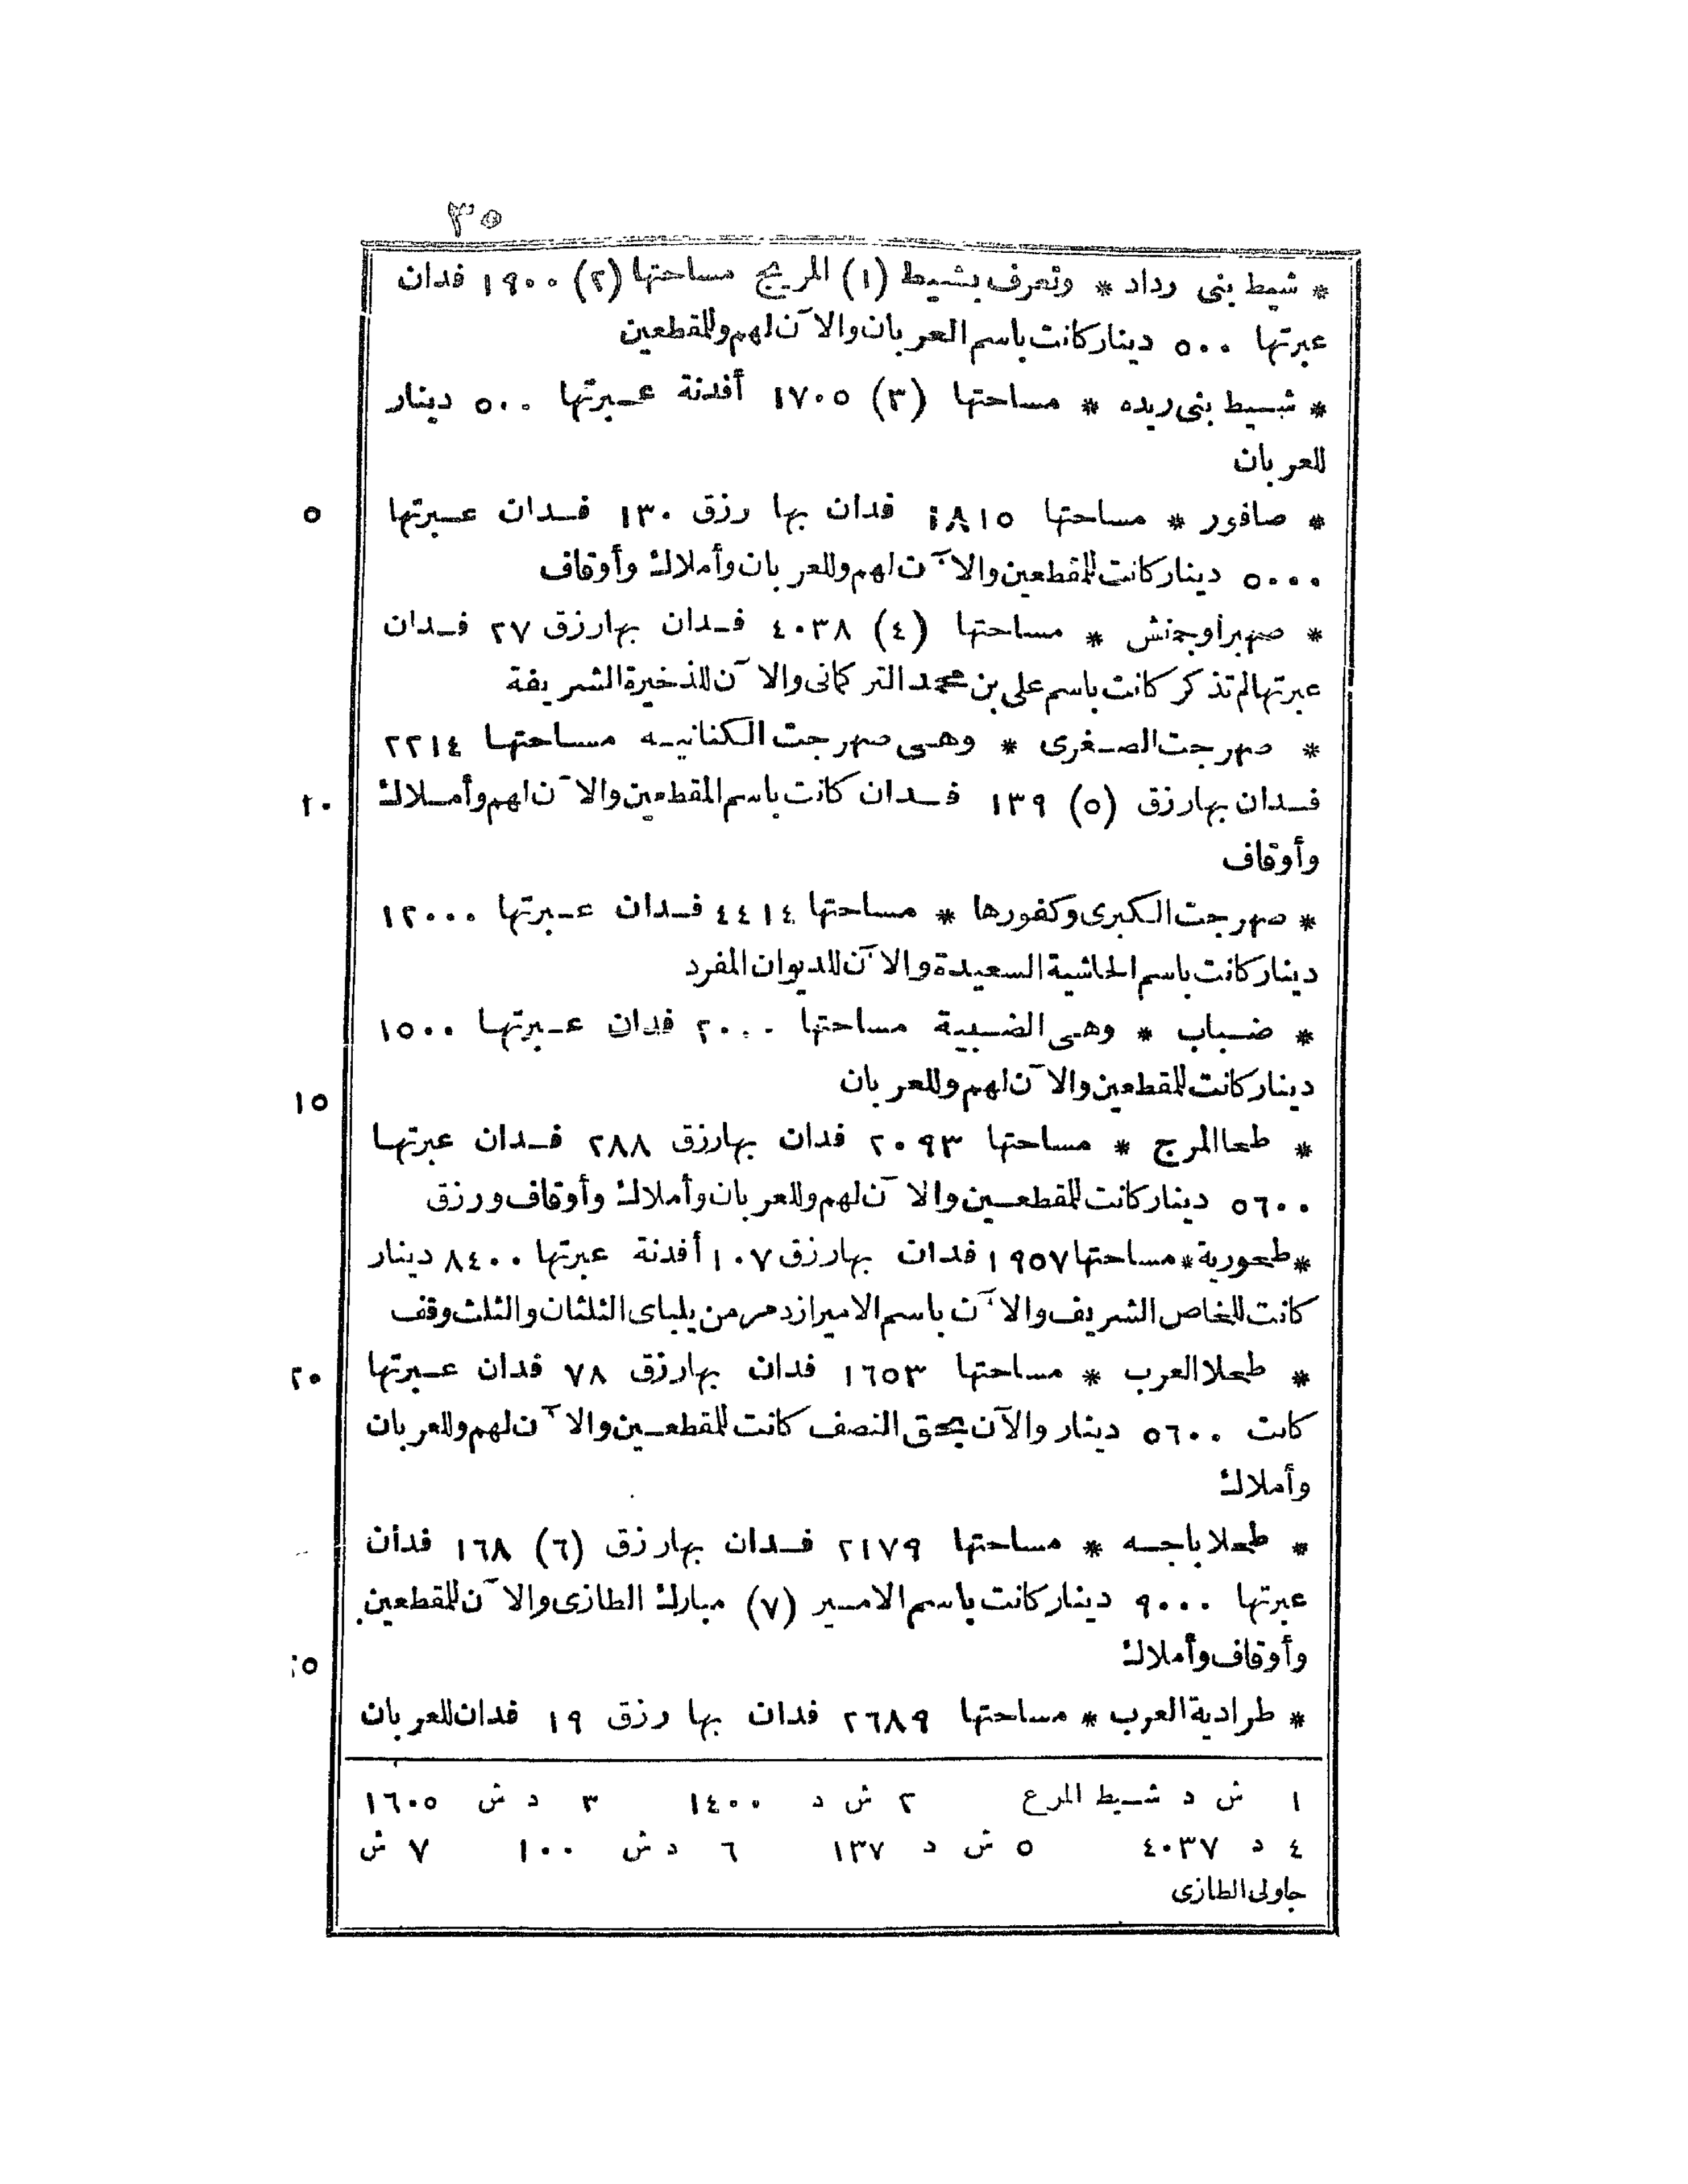 ٣٥
* شيط بنى رداد * وتعرف بشيط (١) المريج مساحتها (٢) ١٩٠٠ فدان
عبرتها ٥٠٠ دينار كانت باسم العربان والآن لهم وللمقطعين
* شيط بنى ريده * مساحتها (٣) ١٧٠٥ أفدنة عبرتها ٥٠٠ دينار
للعربان
٥ * صافور * مساحتها ١٨١٥ فدان بها رزق ١٣٠ فدان عبرتها
٥٠٠٠ دينار كانت للمقطعين والآن لهم وللعربان وأملاك وأوقاف
* صهبرا وجمنش * مساحتها (٤) ٤٠٣٨ فدان بها رزق ٢٧ فدان
عبرتها لم تذكر كانت باسم على بن محمد التركمانى والآن للذخيرة الشريفة
* صهرجت الصغرى * وهى صهرجت الكنانيه مساحتها ٢٢١٤
١٠ فدان بها رزق (٥) ١٣٩ فدان كانت باسم المقطعين والآن لهم وأملاك
وأوقاف
* صهرجت الكبرى وكفورها * مساحتها ٤٤١٤ فدان عبرتها ١٢٠٠٠
دينار كانت باسم الحاشية السعيدة والآن للديوان المفرد
* ضباب * وهى الضبيبة مساحتها ٢٠٠٠ فدان عبرتها ١٥٠٠
١٥ دينار كانت للمقطعين والآن لهم وللعربان
* طحا المرج * مساحتها ٢٠٩٣ فدان بها رزق ٢٨٨ فدان عبرتها
٥٦٠٠ دينار كانت للمقطعين والآن لهم وللعربان وأملاك وأوقاف ورزق
* طحورية * مساحتها ١٩٥٧ فدان بها رزق ١٠٧ أفدنة عبرتها ٨٤٠٠ دينار
كانت للخاص الشريف والآن باسم الامير ازدمر من يلباى الثلثان والثلث وقف
٢٠ * طحلا العرب * مساحتها ١٦٥٣ فدان بها رزق ٧٨ فدان عبرتها
كانت ٥٦٠٠ دينار والآن بحق النصف كانت للمقطعين والآن لهم وللعربان
وأملاك
* طحلا باجسه * مساحتها ٢١٧٩ فدان بها رزق (٦) ١٦٨ فدان
عبرتها ٩٠٠٠ دينار كانت باسم الامير (٧) مبارك الطازى والآن للمقطعين
٢٥ وأوقاف وأملاك
* طرادية العرب * مساحتها ٢٦٨٩ فدان بها رزق ١٩ فدان للعربان
١ ش د شيط المرع ٢ ش د ١٤٠٠ ٣ د ش ١٦٠٥
٤ د ٤٠٣٧ ٥ ش د ١٣٧ ٦ د ش ١٠٠ ٧ ش
جاولى الطازى